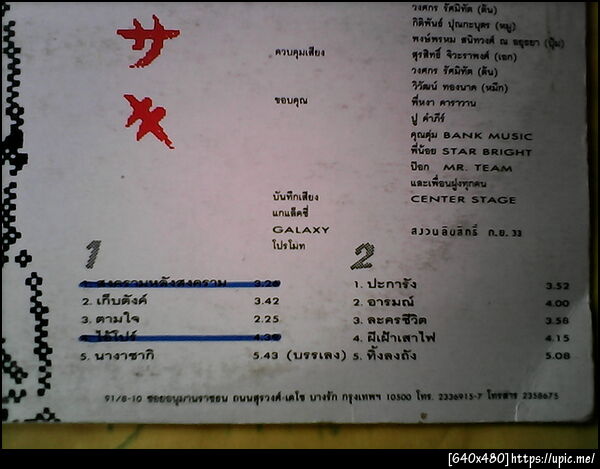 วงศกร รัศมิทัต (ต้น)
กิติพันธ์ ปุณกะบุตร (หมู)
พงษ์พรหม สนิทวงศ์ ณ อยุธยา (ปุ้ม)
ควบคุมเสียง สุรสิทธิ์ จิวะราพงศ์ (เอก)
วงศกร รัศมิทัต (ต้น)
วิวัฒน์ ทองนาค (หมึก)
ขอบคุณ พี่หงา คาราวาน
ปู คำภีร์
คุณตุ่ม BANK MUSIC
พี่น้อย STAR BRIGHT
ป๊อก MR. TEAM
และเพื่อนฝูงทุกคน
บันทึกเสียง CENTER STAGE
แกแล็คซี่
GALAXY สงวนลิขสิทธิ์ ก.ย. 33
โปรโมท
サ
キ
1
1. สงครามหลังสงคราม 3.20
2. เก็บตังค์ 3.42
3. ตามใจ 2.25
4. ไอ้โปร์ 4.30
5. นางาซากิ 5.43 (บรรเลง)
2
1. ปะการัง 3.52
2. อารมณ์ 4.00
3. ละครชีวิต 3.58
4. ฝีเฝ้าเสาไฟ 4.15
5. ทิ้งลงถัง 5.08
91/8-10 ซอยอนุมานราชธน ถนนสุรวงศ์-เดโช บางรัก กรุงเทพฯ 10500 โทร. 2336915-7 โทรสาร 2358675
[640x480]https://upic.me/